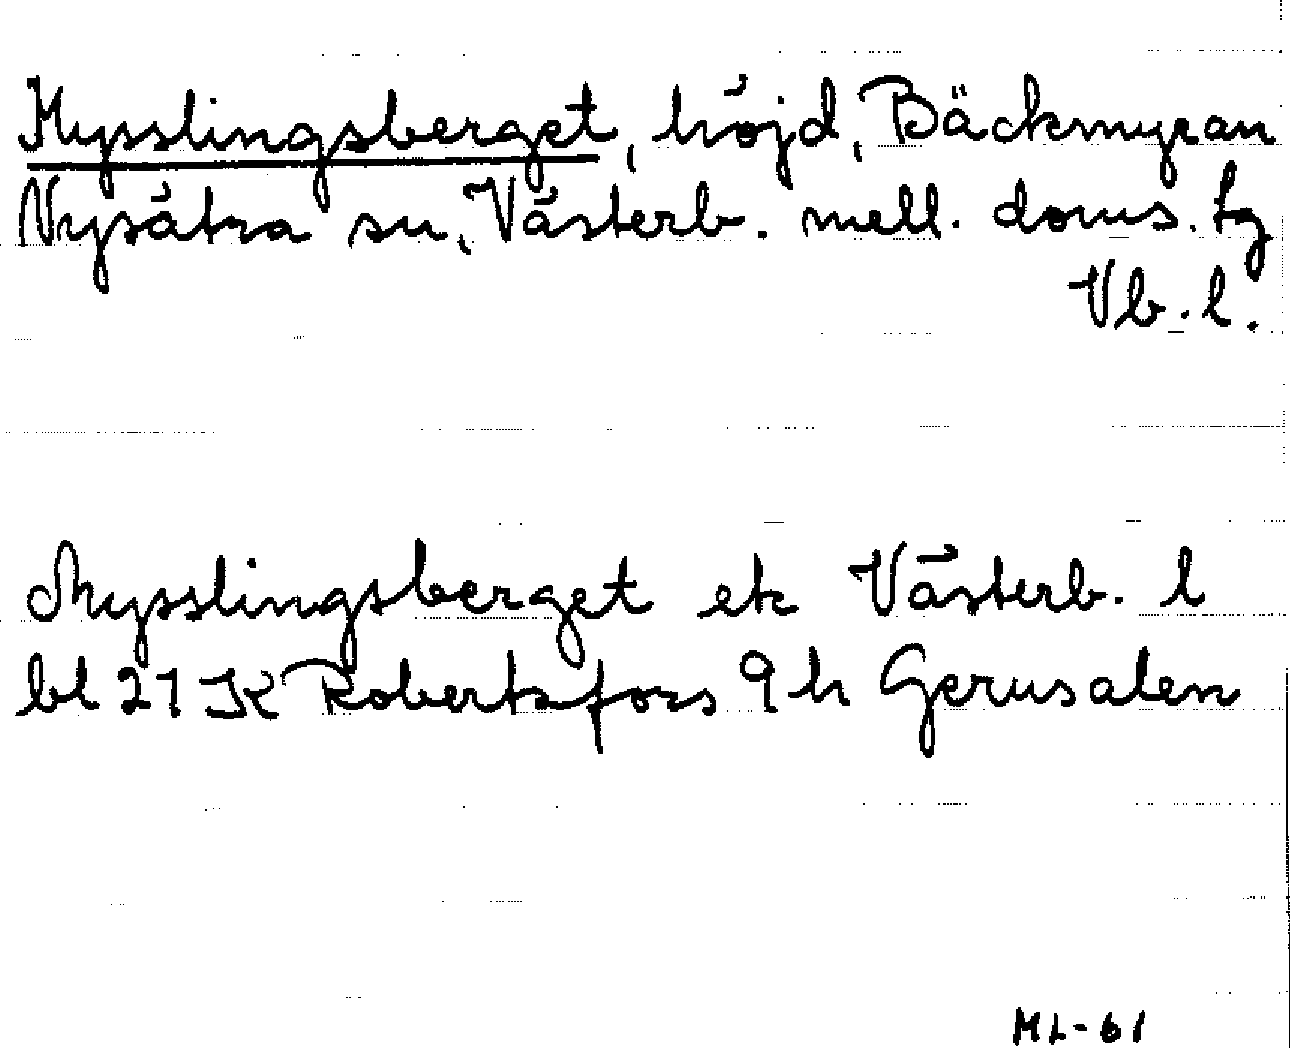 Mysslingsberget, höjd, Bäckmyran
Nysätra sn, Västerb. mell. doms. tg
Vb. l.
Mysslingsberget ek Västerb. l
bl 21 K Robertsfors 9 h Gerusalen
ML-61